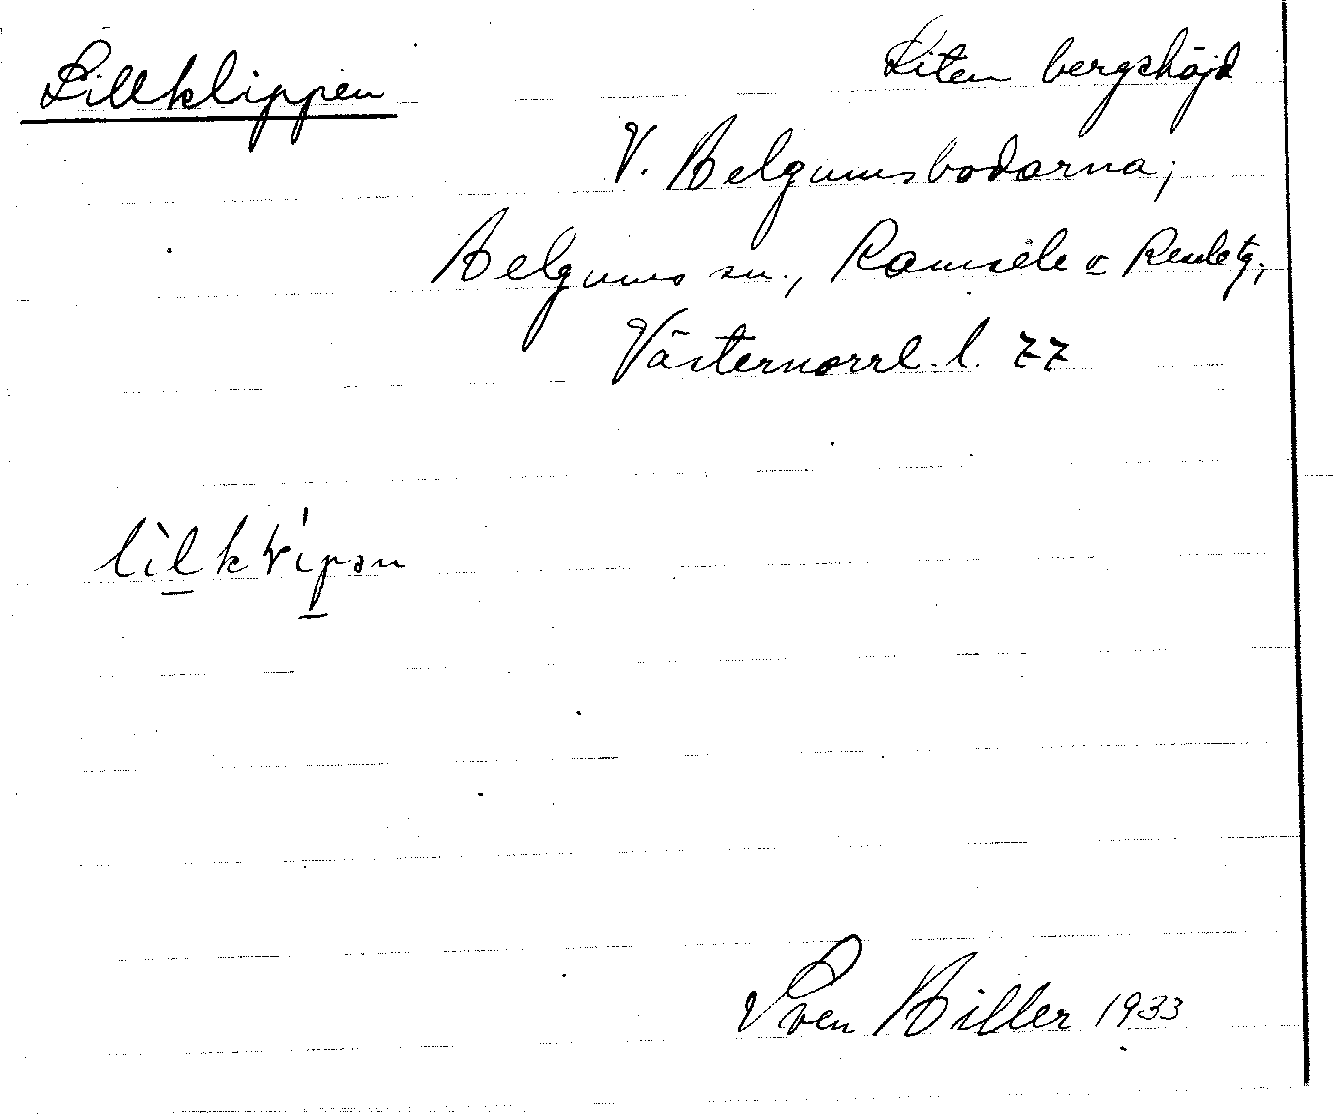 Lillklippen
Liten bergshöjd
V. Helgumsbodarna;
Helgums sn., Ramsele o Resele tg,
Västernorrl. l. 77
Sven Hiller 1933